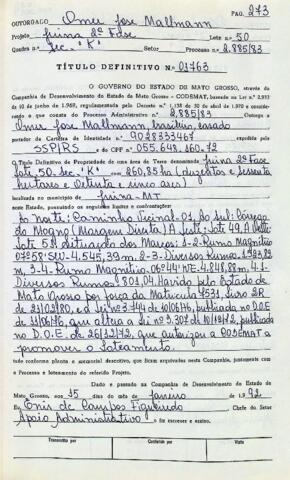 PAG. 273
OUTORGADO Omer José Mallmann
Projeto Juina 2ª Fase Lote n.º 50
Quadra n.º Sec. "K" Processo n.º 2.885/83
TÍTULO DEFINITIVO N.º 01763
O GOVERNO DO ESTADO DE MATO GROSSO, através da
Companhia de Desenvolvimento do Estado de Mato Grosso - CODEMAT, baseado na Lei n.º 2.933
de 10 de junho de 1.969, regulamentada pelo Decreto n.º 1.138 de 30 de abril de 1.970 e considerando
o que consta do Processo Administrativo n.º 2.885/83 Outorga a
Omer José Mallmann, brasileiro, casado
portador da Carteira de Identidade n.º 9028333467 expedida pela
SSP/RS e do CPF n.º 055.648.160-72
O Título Definitivo de Propriedade de uma área de Terra denominada Juina 2ª Fase
Lote: 50 Sec. "K" com 260,85 ha (duzentos e sessenta
hectares e oitenta e cinco ares)
localizada no município de Juina - MT
neste Estado, possuindo os seguintes limites e confrontações:
Ao Norte: Caminho Vicinal 01. Ao Sul: Córrego
do Mogno (Margem Direita) A Leste: Lote 49, A Oeste:
Lote 51. Situação dos Marcos: 1-2- Rumo Magnético
07º58' SW - 4.545,39 m. 2-3- Diversos Rumos
m, 3-4- Rumo Magnético 06º44' NE - 4.848,88 m. 4.1-
Diversos Rumos 801,04. Havido pelo Estado de
Mato Grosso por força da Matrícula 4531, livro 2R
de 21/02/80, e d. Lei nº 3.744 de 10/06/76, publicado no D.O.E
de 11/06/76, que altera a Lei nº 3.307 de 10/12/72, publicada
no D.O.E. de 26/12/72, que autorizou a CODEMAT a
promover o loteamento.
tudo conforme planta e memorial descritivo, que ficam arquivados nesta Companhia, juntamente com
o Processo e loteamento do referido Projeto.
Dado e passado na Companhia de Desenvolvimento do Estado de
Mato Grosso, aos 15 dias do mês de Janeiro de 1.992.
Eu Enis de Campos Figueiredo
Apoio Administrativo o fiz escrever e assino.
Transcrito por Conferido por Visto